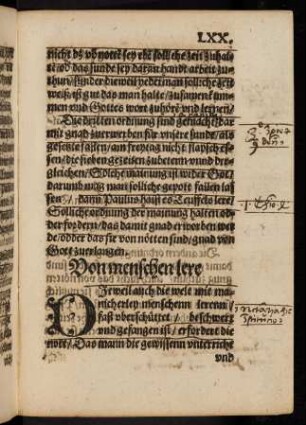 LXX.
nicht ds vō nott sey eben solche zeit zuhal
te od das sunde sey daran handt arbeit zu
thun/ sunder die weil yederman solliche zeit
weiß/ ist gut das man halte/ zusament kum
men vnd Gottes wort zuhörē vnd lernen/
Die dritten ordnung sind gericht/ dar
mit gnad zuerwerben für vnsere sunde/ als
gesetzte fasten/ am freytag nicht flaysch es
sen/ die sieben gezeiten zubeten vnnd der
gleichen/ Solche mainung ist wider Got
dar umb mag man solliche gepott fallen las
sen/ dann Paulus haist es Teuffels lere/
Solliche ordnung der mainung halten od
der fordern/ das damit gnad erworben wer
de/ odder das sie von nötten sind/ gnad von
Gott zuerlangen.
Von menschen lere
DIeweil auch die welt mit ma
nicherley menschenn lerenn/
fast vberschüttet/ beschwert
vnd gefangen ist/ erfordert die
not/ Das mann die gewissenn vnterricht
vnd